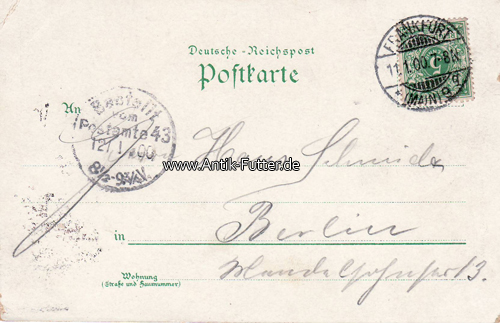 Deutsche - Reichspost
Postkarte
FRANKFURT
11.1.00.7-8N.
* (MAIN) 9 g
5
An
Bestellt
vom
Postamte 43
12/1.00
8½-9¾V.
Hans Schmidt
www.Antik-Futter.de
in Berlin
Wohnung
(Straße und Hausnummer)
13.